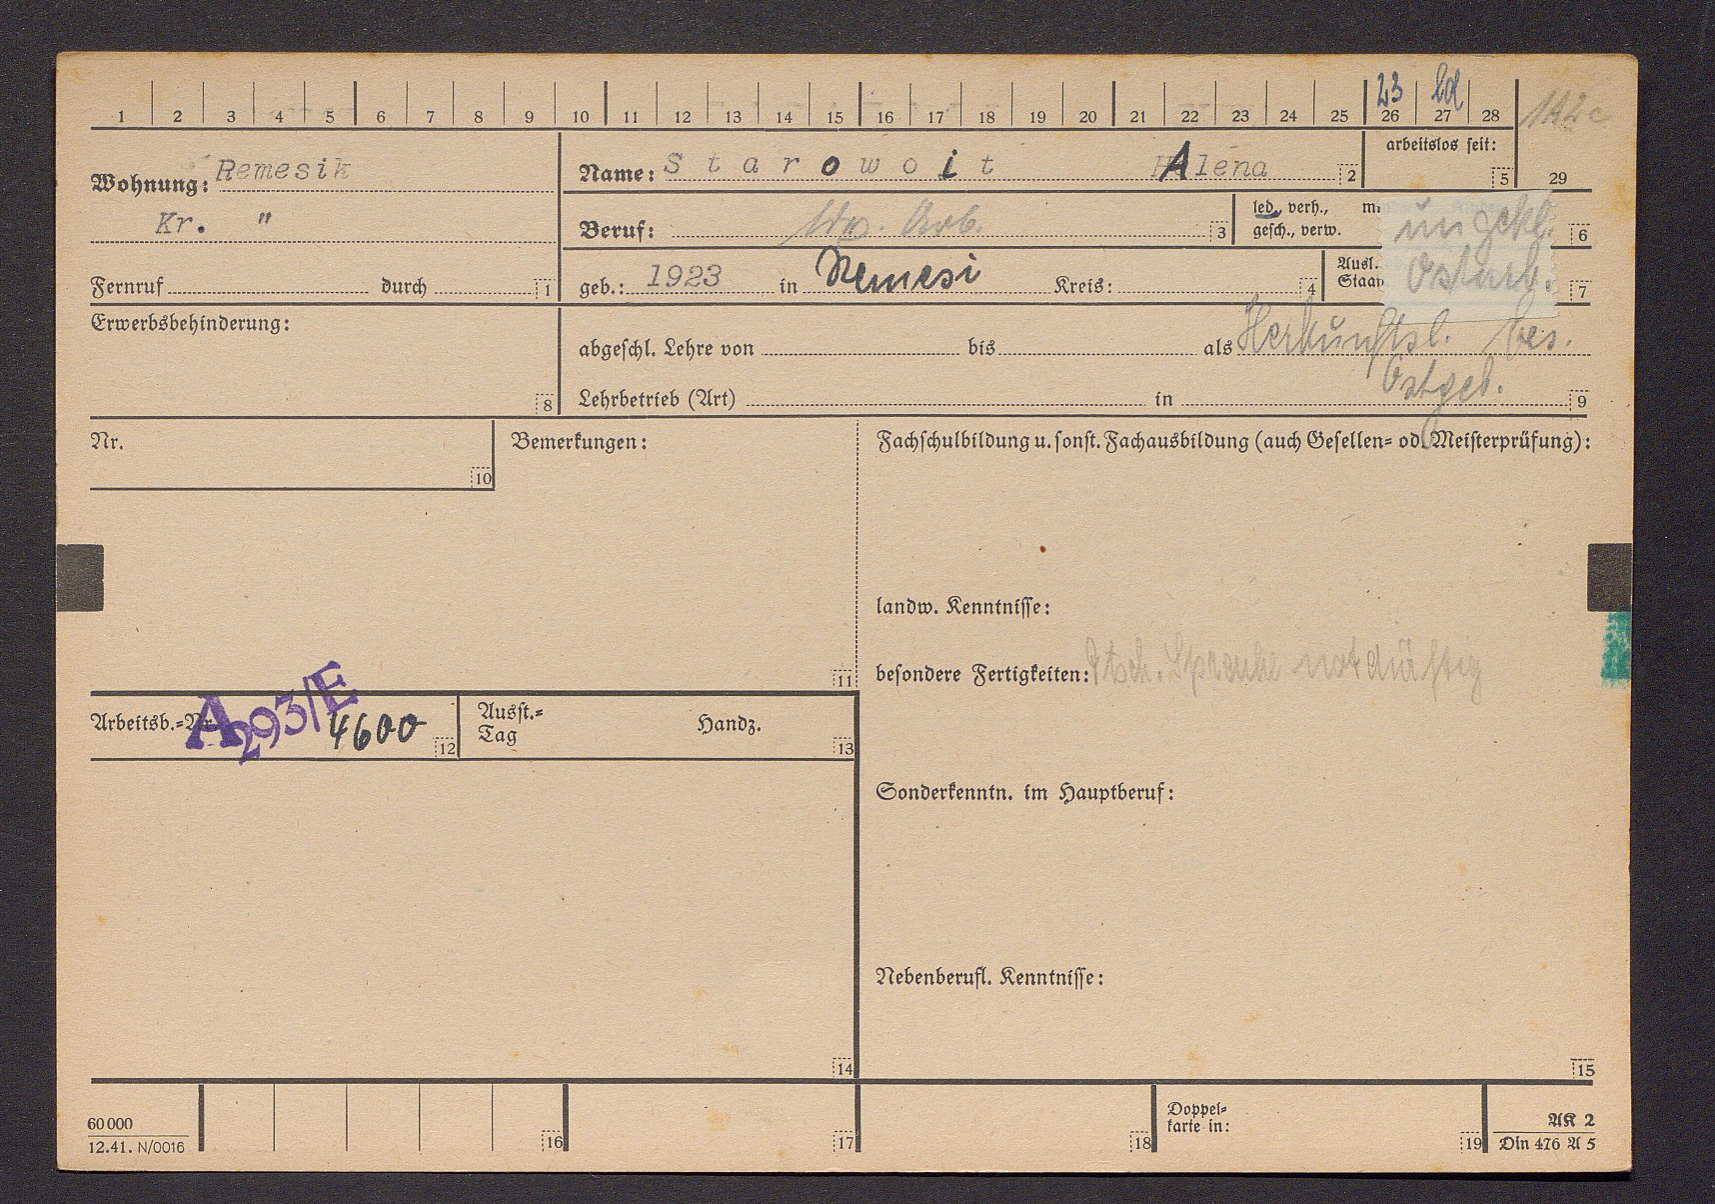 1 2 3 4 5 6 7 8 9 10 11 12 13 14 15 16 17 18 19 20 21 22 23 24 25 26 27 28
23
Wohnung: Remesik
Kr. "
Name: Starowoit Alena 2
arbeitslos seit:
5 29
Beruf: Arb. 3
led., verh.,
gesch., verw.
ungekl. 6
Ostarb. 7
Fernruf durch 1
geb.: 1923 in Remesi Kreis: 4
Ausl.
Erwerbsbehinderung:
8
abgeschl. Lehre von bis als Herkunftsl. bes.
Ostgeb.
Lehrbetrieb (Art) in 9
Nr.
10
Bemerkungen:
11
Fachschulbildung u. sonst. Fachausbildung (auch Gesellen= od. Meisterprüfung):
landw. Kenntnisse:
besondere Fertigkeiten: Dtsch. Sprache notdürftig
Arbeitsb.=Nr. A 293/E 4600 12
Ausst.=
Tag
Handz.
13
Sonderkenntn. im Hauptberuf:
Nebenberufl. Kenntnisse:
14
15
60 000
12.41. N/0016
16
17
18
Doppel=
karte in:
19
AK 2
Din 476 A 5